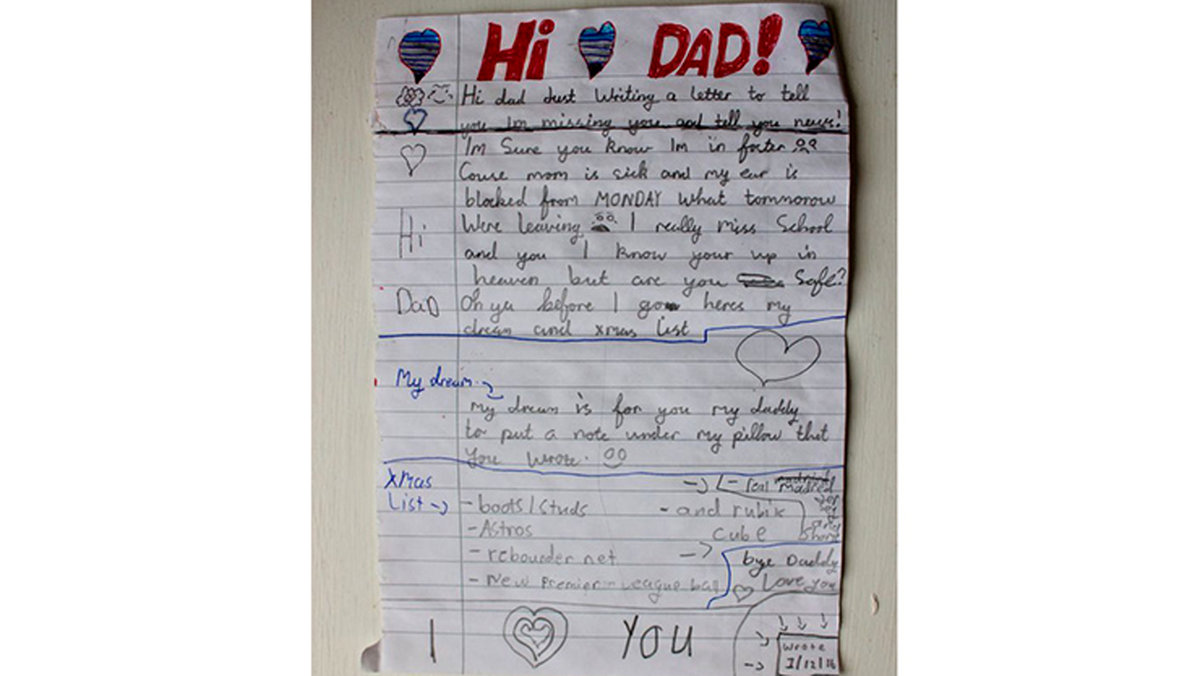 Hi DAD!
Hi dad Just Writing a letter to tell
you Im missing you and tell you news!
Im Sure you know Im in foster
Couse mom is sick and my ear is
blocked from MONDAY what tommorow
Hi
Were leaving I really miss School
and you I know your up in
heaven but are you Safe?
Dad
Oh ya before I go heres my
dream and xmas list
My dream
my dream is for you my daddy
to put a note under my pillow that
you wrote.
Xmas
List
- boots/studs
- Astros
- rebounder net
- New Premier League ball
- real madrid
and
- and rubix
cube
bye Daddy
Love you
I YOU
wrote
1/12/16